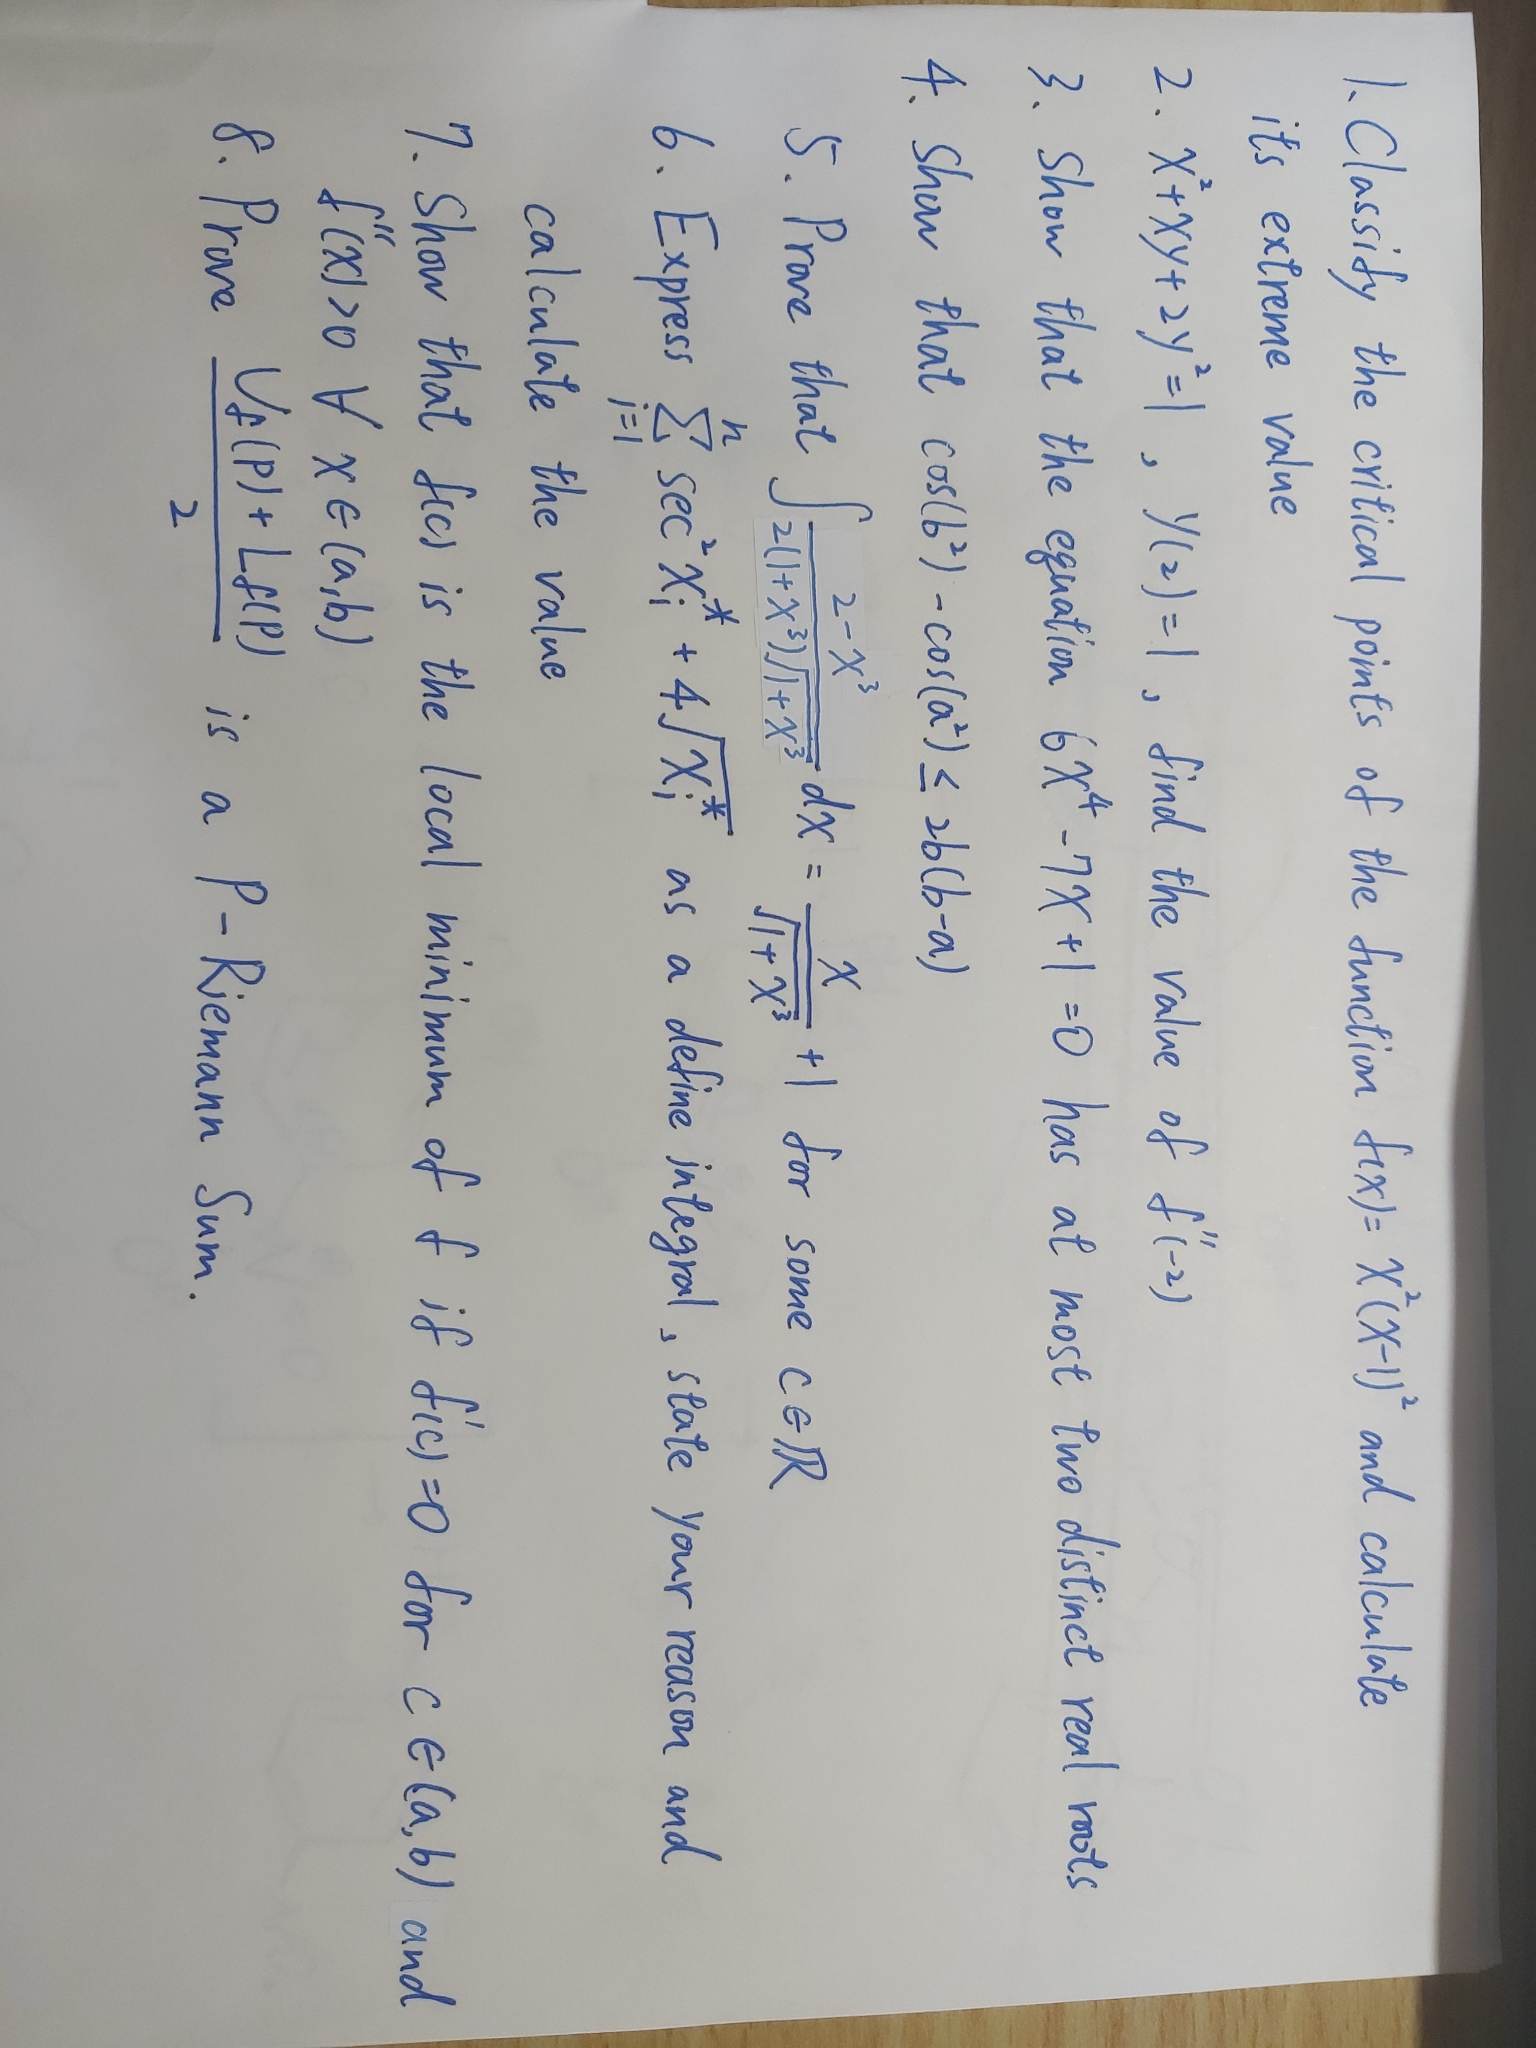 1. Classify the critical points of the function f(x)= x²(x-1)² and calculate
its extreme value
2. x²+xy+2y²=1 , y(2)=1 , find the value of f''(-2)
3. Show that the equation 6x⁴-7x+1=0 has at most two distinct real roots
4. Show that cos(b²)-cos(a²)≤2b(b-a)
5. Prove that ∫ (2-x³)/(2(1+x³)√(1+x³)) dx = x/√(1+x³) +1 for some c∈ℝ
6. Express ∑_{i=1}^{n} sec²x_i* + 4√(x_i*) as a define integral, state your reason and
calculate the value
7. Show that f(c) is the local minimum of f if f'(c)=0 for c∈(a,b) and
f''(x)>0 ∀ x∈(a,b)
8. Prove (U_f(P)+L_f(P))/2 is a P-Riemann Sum.